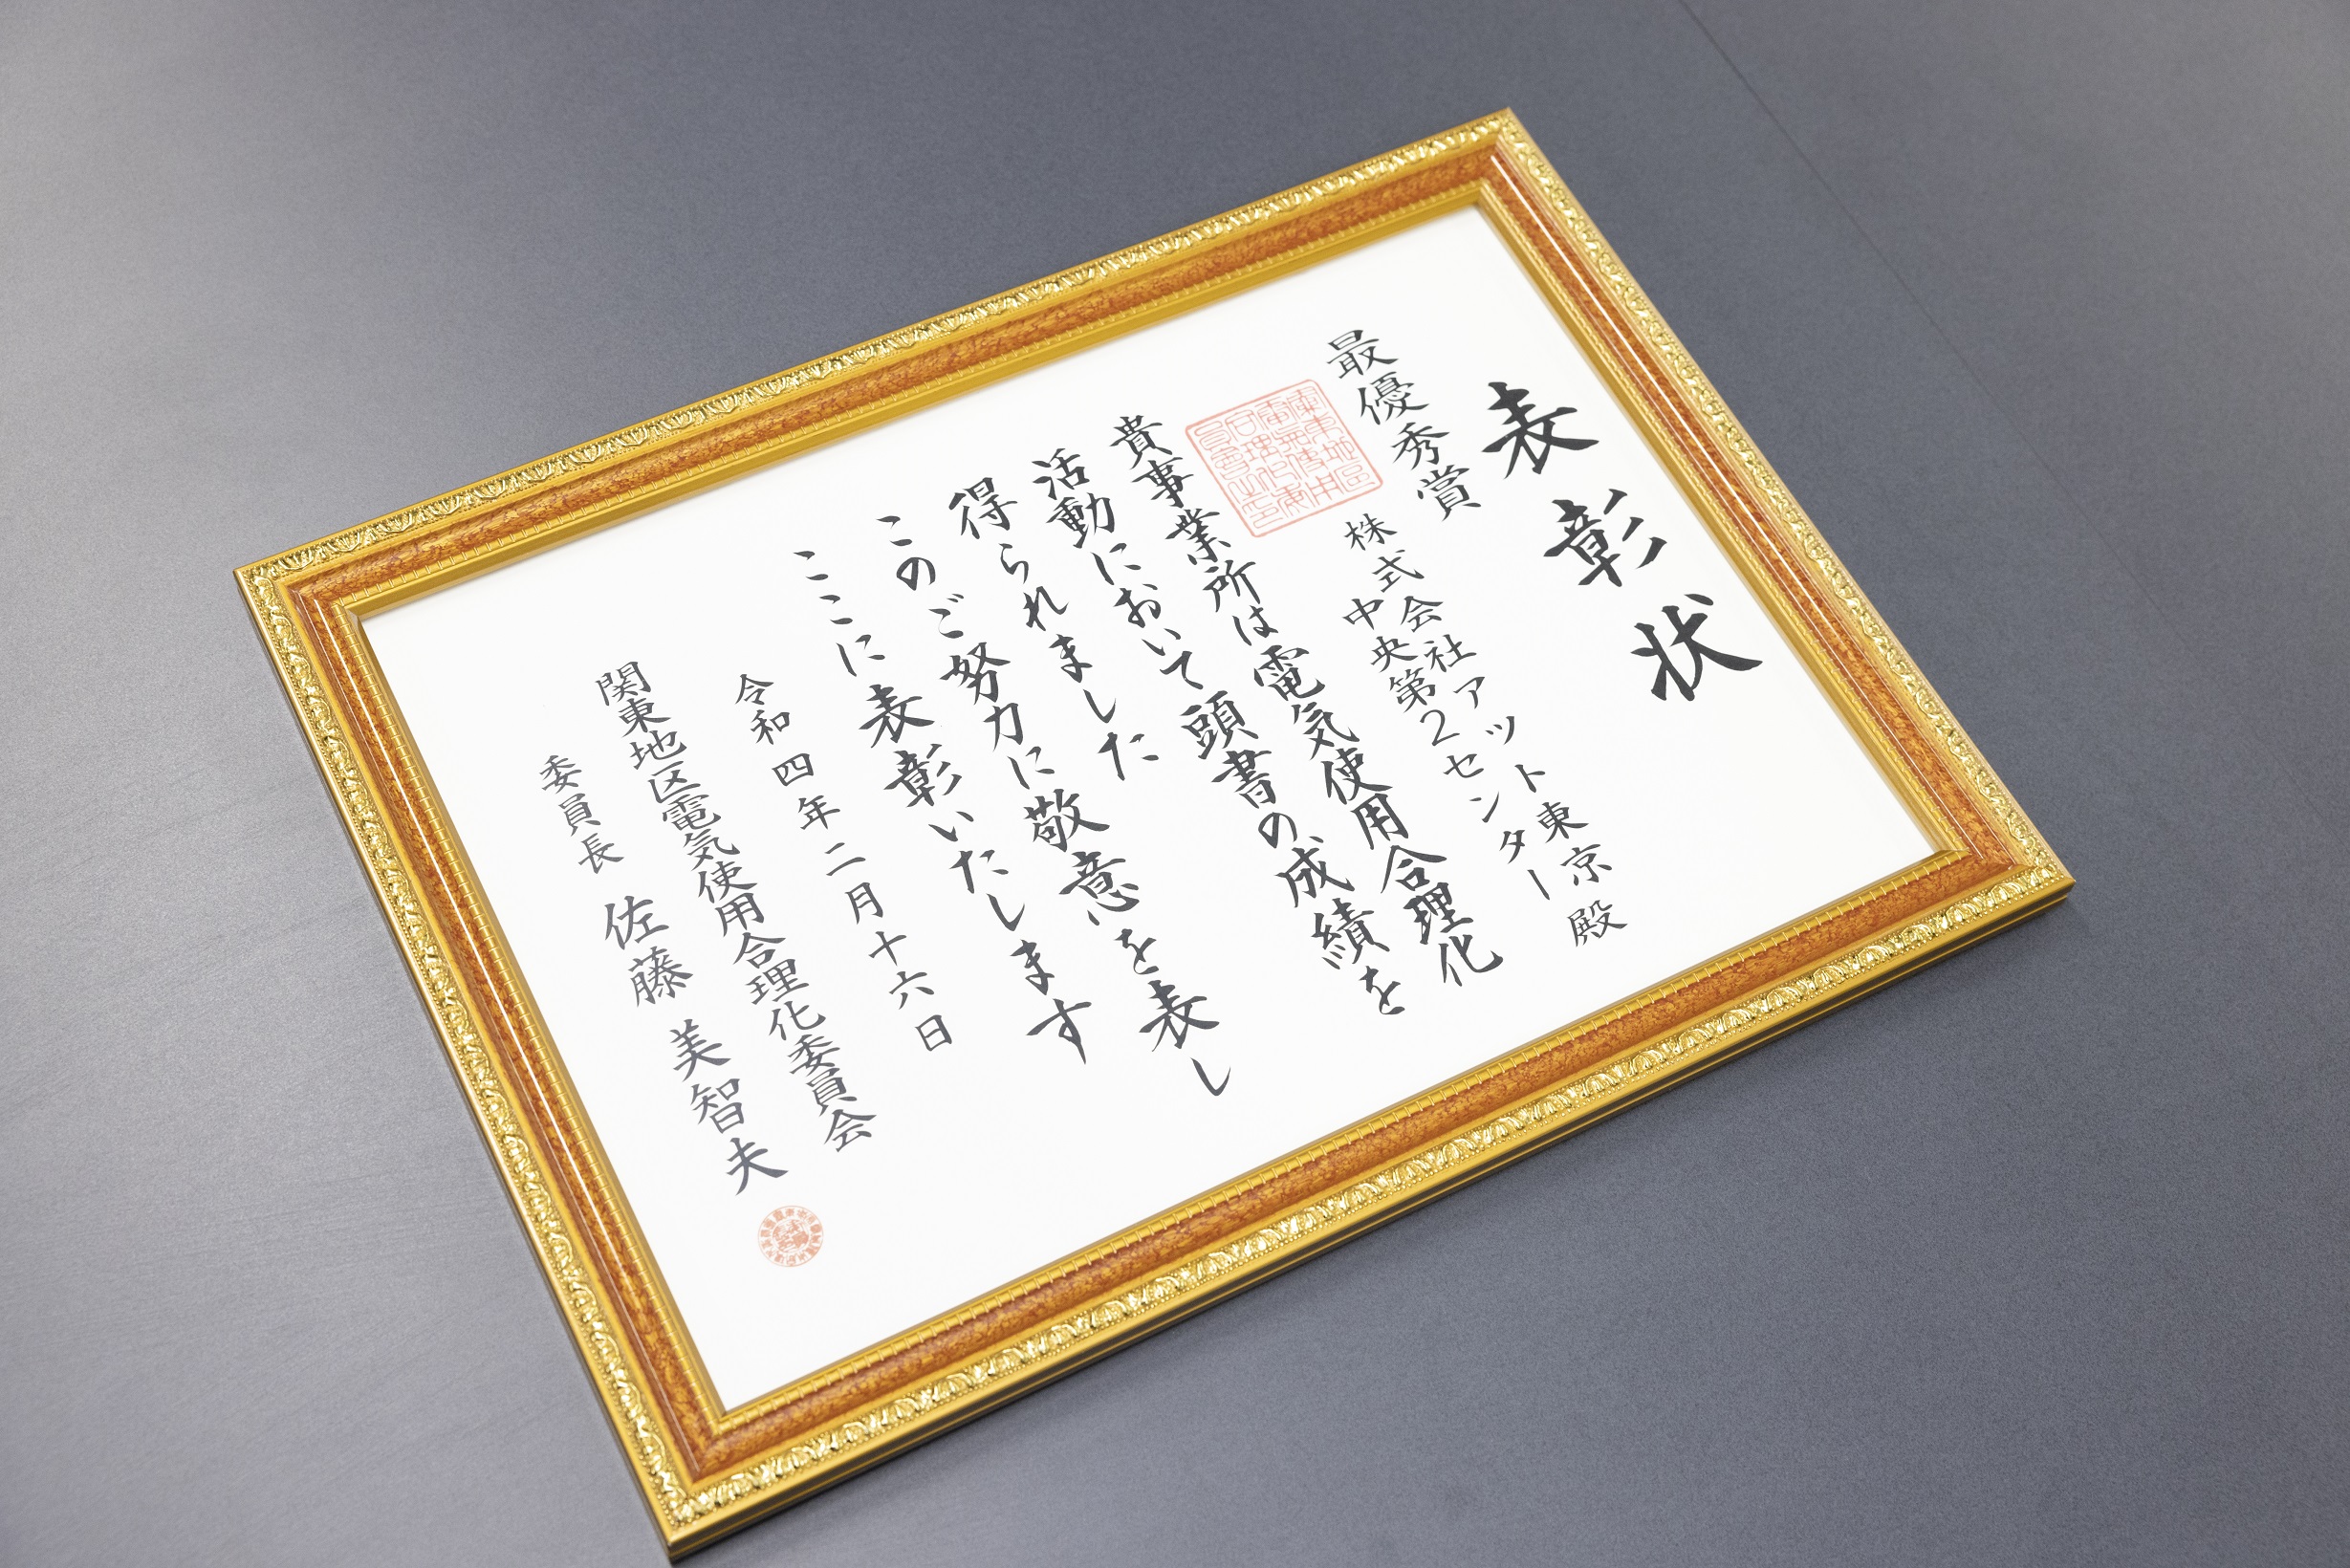 表彰状
最優秀賞
株式会社アット東京殿
中央第2センター
貴事業所は電気使用合理化
活動において頭書の成績を
得られました
このご努力に敬意を表し
ここに表彰いたします
令和四年二月十六日
関東地区電気使用合理化委員会
委員長 佐藤美智夫